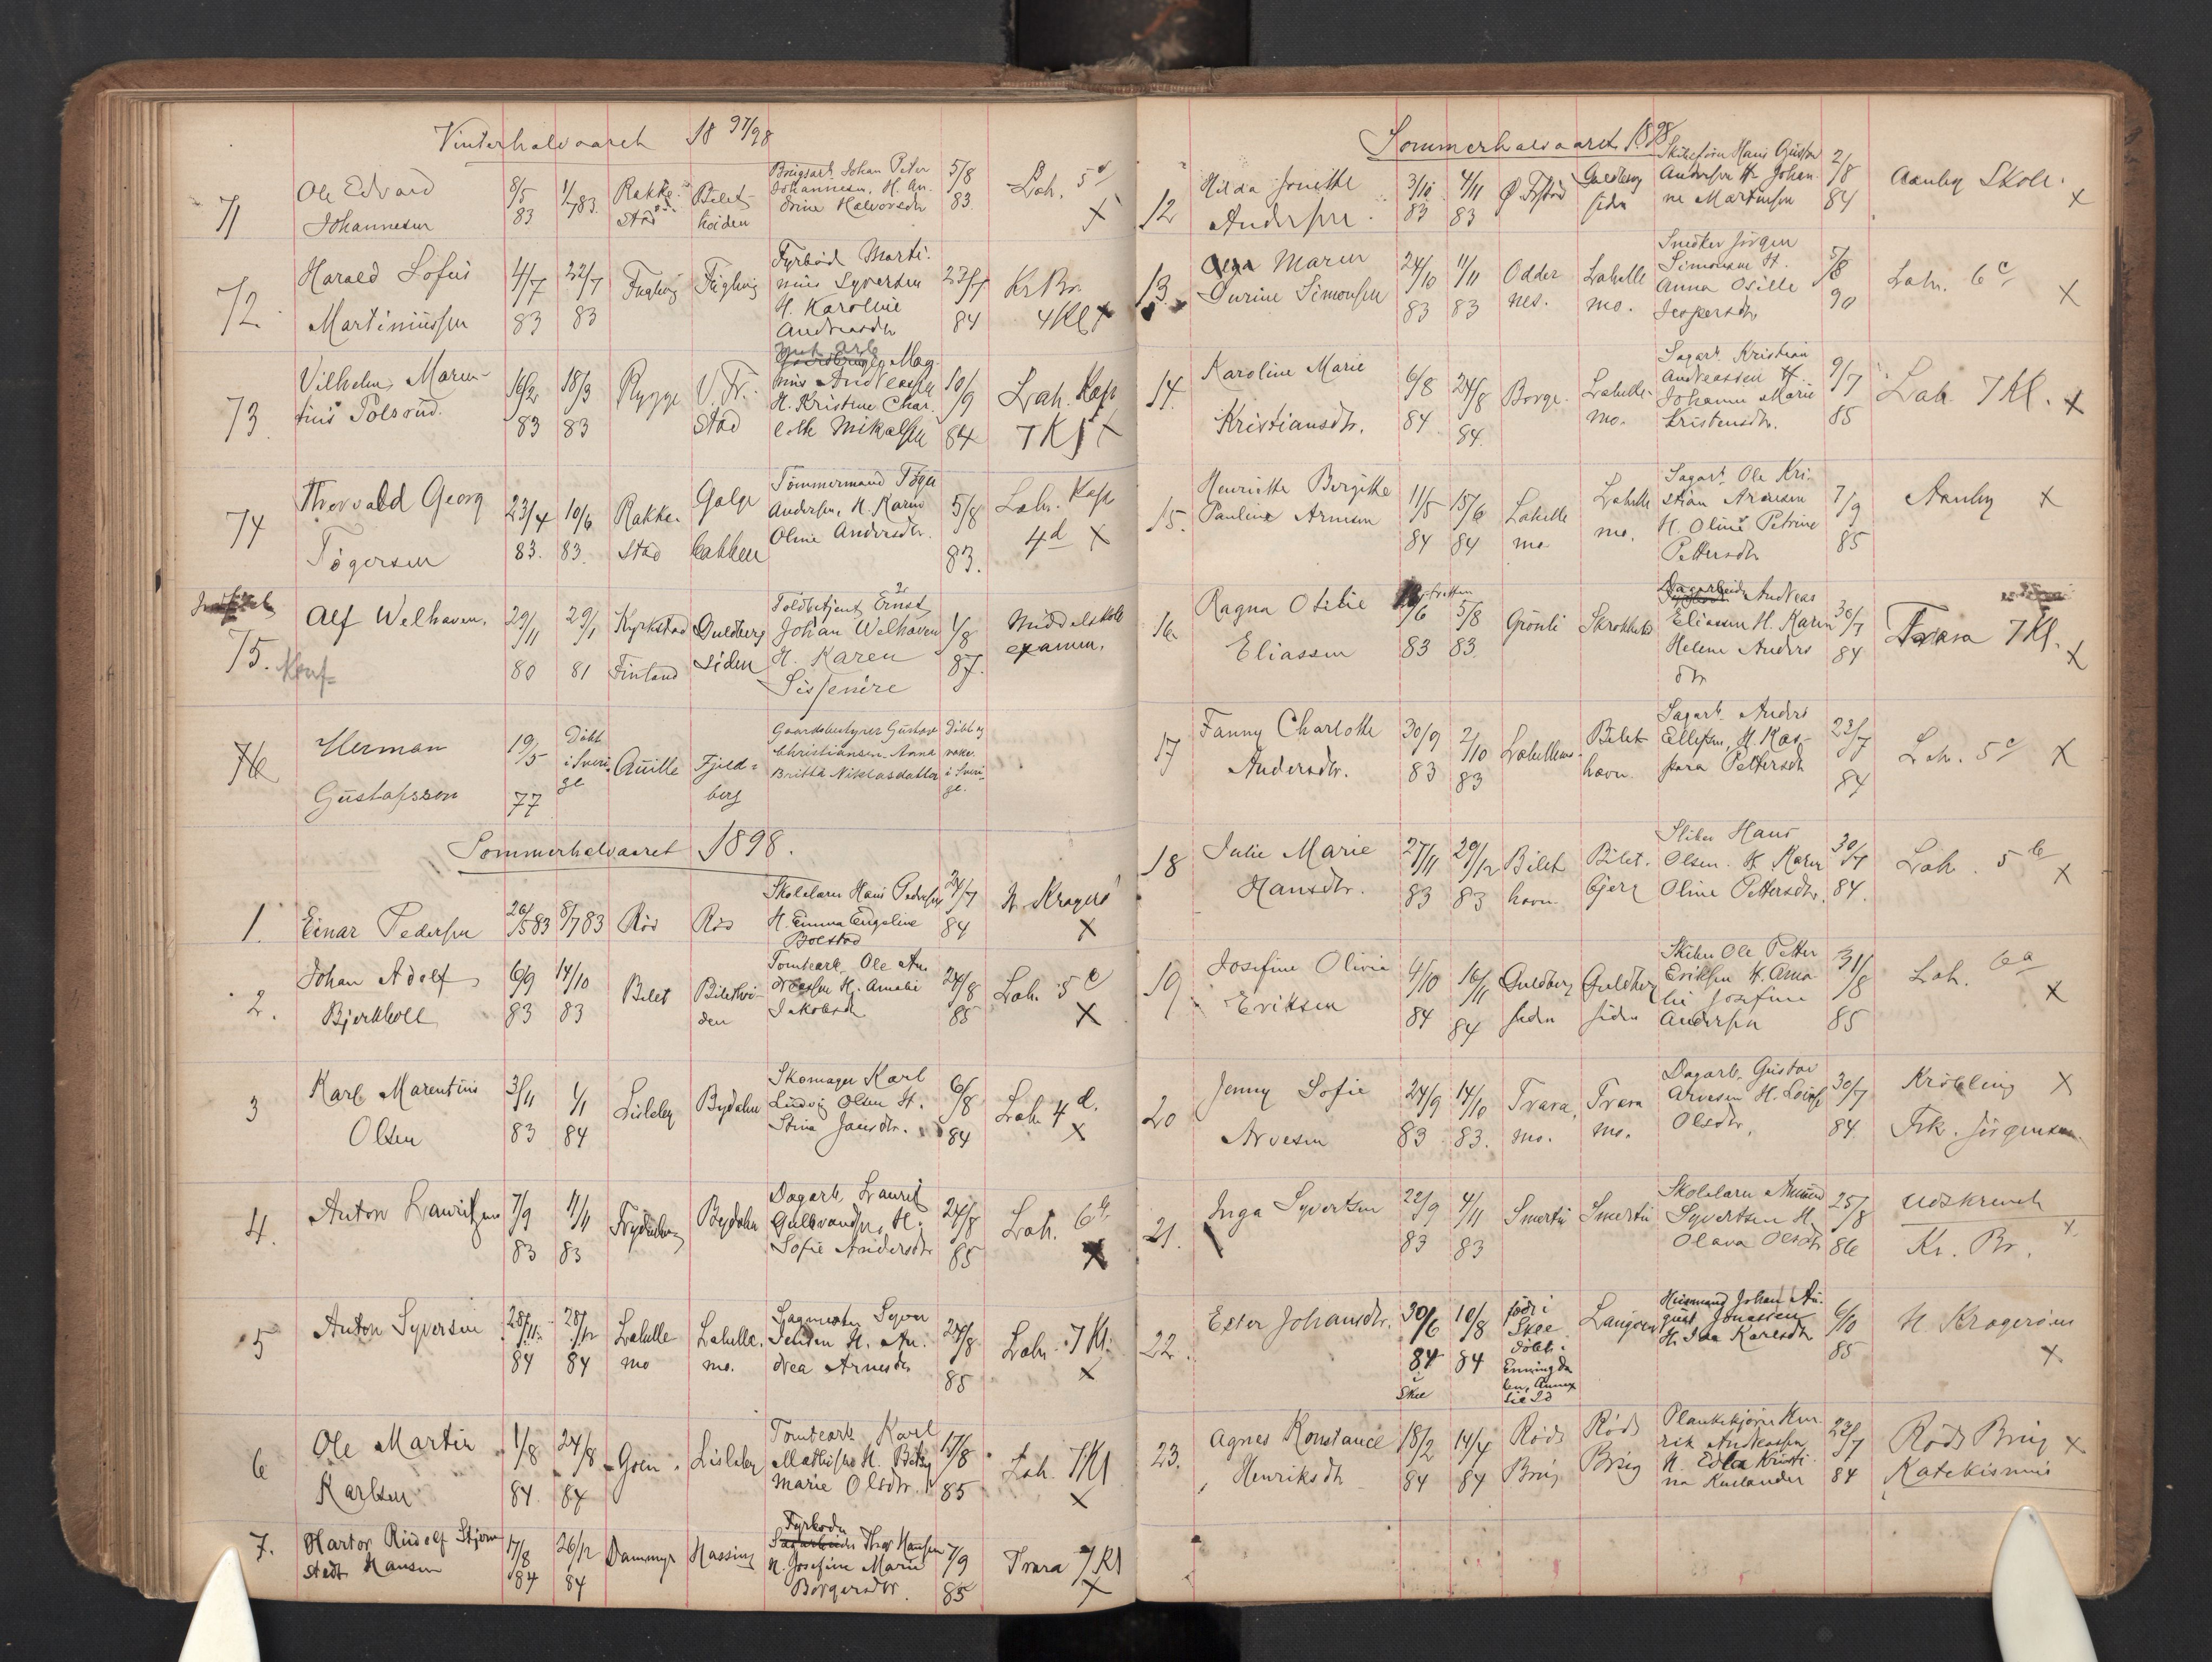 Vinterhalvaaret 18 97/98
71 Ole Edvard Johannesen 8/5 83 1/7 83 Rakkestad Bilethöiden Brugsarb. Johan Peter Johannesen, H. Andrine Halvorsdtr 5/8 83 Lah. 5 d X
72. Harald Lofus Martiniussen 4/7 83 22/7 83 Fuglevig Fuglevig Fyrbød. Martinius Syversen H. Karoline Andreasdtr 23/7 84 Kr. Br. 4 Kl X
73. Vilhelm Marentius Polsrud. 16/2 83 18/3 83 Rygge V. Fr.stad Magnus Andreassen H. Kristine Charlotte Mikalsen 10/9 84 Lah. Kap 7 Kl X
74 Thorvald Georg Tögersen 23/4 83. 10/6 83. Rakkestad Galgebakken Tömmermand Töger Andersen, H. Karen Oline Andersdtr. 5/8 83. Lah. Kap 4 d X
75. Konf. Alf Welhaven. 29/11 80 29/1 81 Kyrkstad Finland Guldbergsiden Toldbetjent Ernst Johan Welhaven H. Karen 1/8 87. Middelskoleexamen.
76 Herman Gustafsson 19/5 77 Döbt i Sverige Quille Fjeldberg Gaardsbestyrer Gustav Christiansen Anna Britta Niklasdatter Döbt og vakc. i Sverige.
Sommerhalvaaret 1898.
1. Einar Pedersen 26/5 83 8/7 83 Röd Röd Skolelærer Hans Pedersen H. Emma Engeline Bolstad 24/7 84 N. Kragerö X
2. Johan Adolf Bjerkholt 6/9 83 14/10 83 Bilet Bilethöiden Tomtearb. Ole Andreassen H. Amalie Jakobsdtr 24/8 85 Lah. 5 c X
3 Karl Marentius Olsen 3/11 83 1/1 84 Lisleby Bydalen Skomager Karl Ludvig Olsen H. Stina Jansdtr. 6/8 84 Lah. 4 d. X
4. Anton Lauritzen 7/9 83 11/11 83 Frydenberg Bydalen Dagarb. Laurits Gulbrandsen H. Sofie Andersdtr 24/8 85 Lah. 6 b X
5 Anton Syversen 28/11 84 28/12 84 Lahellemo Lahellemo. Sagmester Syver Jensen H. Andrea Arnesdtr 24/8 85 Lah. 7 Kl. X
6 Ole Martin Karlsen 1/8 84. 24/8 84 Goen Lisleby Tomtearb. Karl Mathisen H. Betzy Marie Olsdtr. 17/8 85 Lah. 7 Kl X
7. Hartor Rudolf Stjernstedt Hansen 17/8 84 26/12 84 Dammyr Hassing Fyrbøder Sagarbeider Thor Hansen H. Josefine Marie Borgersdtr. 7/9 85 Trara 7 Kl X
Sommerhalvaaret 1898
12 Hilda Josette Andersen 3/10 83 4/11 83 Ø. Fr.stad Guldbergsiden Skibsförer Hans Gustav Andersen H. Johanne Martinsen 2/8 84 Aanby Skole. X
13. Olga Maren Surine Simonsen 24/10 83 11/11 83 Oddernes. Lahellemo. Snedker Jörgen Simonsen H. Anna Osille Jespersdtr 5/8 90 Lah. 6 c X
14. Karoline Marie Kristiansdtr. 6/8 84 24/8 84. Borge. Lahellemo. Sagarb. Kristian Andreassen H. Johanne Marie Kristensdtr. 9/7 85 Lah. 7 Kl. X
15. Henriette Birgitte Pauline Arnesen 11/5 84 15/6 84 Lahellemo Lahellemo. Sagarb. Ole Kristian Arnesen H. Oline Petrine Pettersdtr 7/9 85 Aanby X
16 Ragna Otilie Eliassen 13/6 tretten 83 5/8 83. Grönli Skrokkeld Dagarbeider Andreas Eliassen H. Karen Helene Andersdtr 30/7 84 Trara 7 Kl. X
17 Fanny Charlotte Andersdtr. 30/9 83 2/10 83 Bilethavn Sagarb. Anders Ellefsen, H. Kaspara Pettersdtr 23/7 84 Lah. 5 c X
18 Julie Marie Hansdtr. 27/11 83 29/12 83 Bilethavn Biletbjerg Sliber Hans Olsen. H. Karen Oline Pettersdtr. 30/7 84. Lah. 5 b X
19. Josefine Olivia Eriksen 4/10 84 16/11 84 Guldbergsiden Guldbergsiden Skiber Ole Petter Eriksen H. Amalie Josefine Andersen 31/8 85 Lah. 6 a X
20 Jenny Sofie Arvesen 24/9 83 14/10 83. Traramo. Traramo. Dagarb. Gustav Arvesen H. Lovise Olsdtr. 30/7 84 Kiöbling X Frk. Jörgensen.
21. Inga Syvertsen 22/9 83 4/11 83 Smertu Smertu Skolelærer Amund Syvertsen H. Olava Olsdtr 25/8 86 Udskrevet Kr. Br. X.
22. Ester Johansdtr. 30/6 84 i Skee 10/8 84 født i Skee döbt i Enningdalen, Annex til Id Langöen Husmand Johan August Jonassen H. Ida Karlsdtr 6/9 85 N. Kragerøen X
23. Agnes Konstance Henriksdtr 18/2 84 14/4 84 Röds Brug Röds Brug Plankekjörer Henrik Andreassen H. Edla Kristina Kuslander 23/7 84 Röds Brug X Katekismus